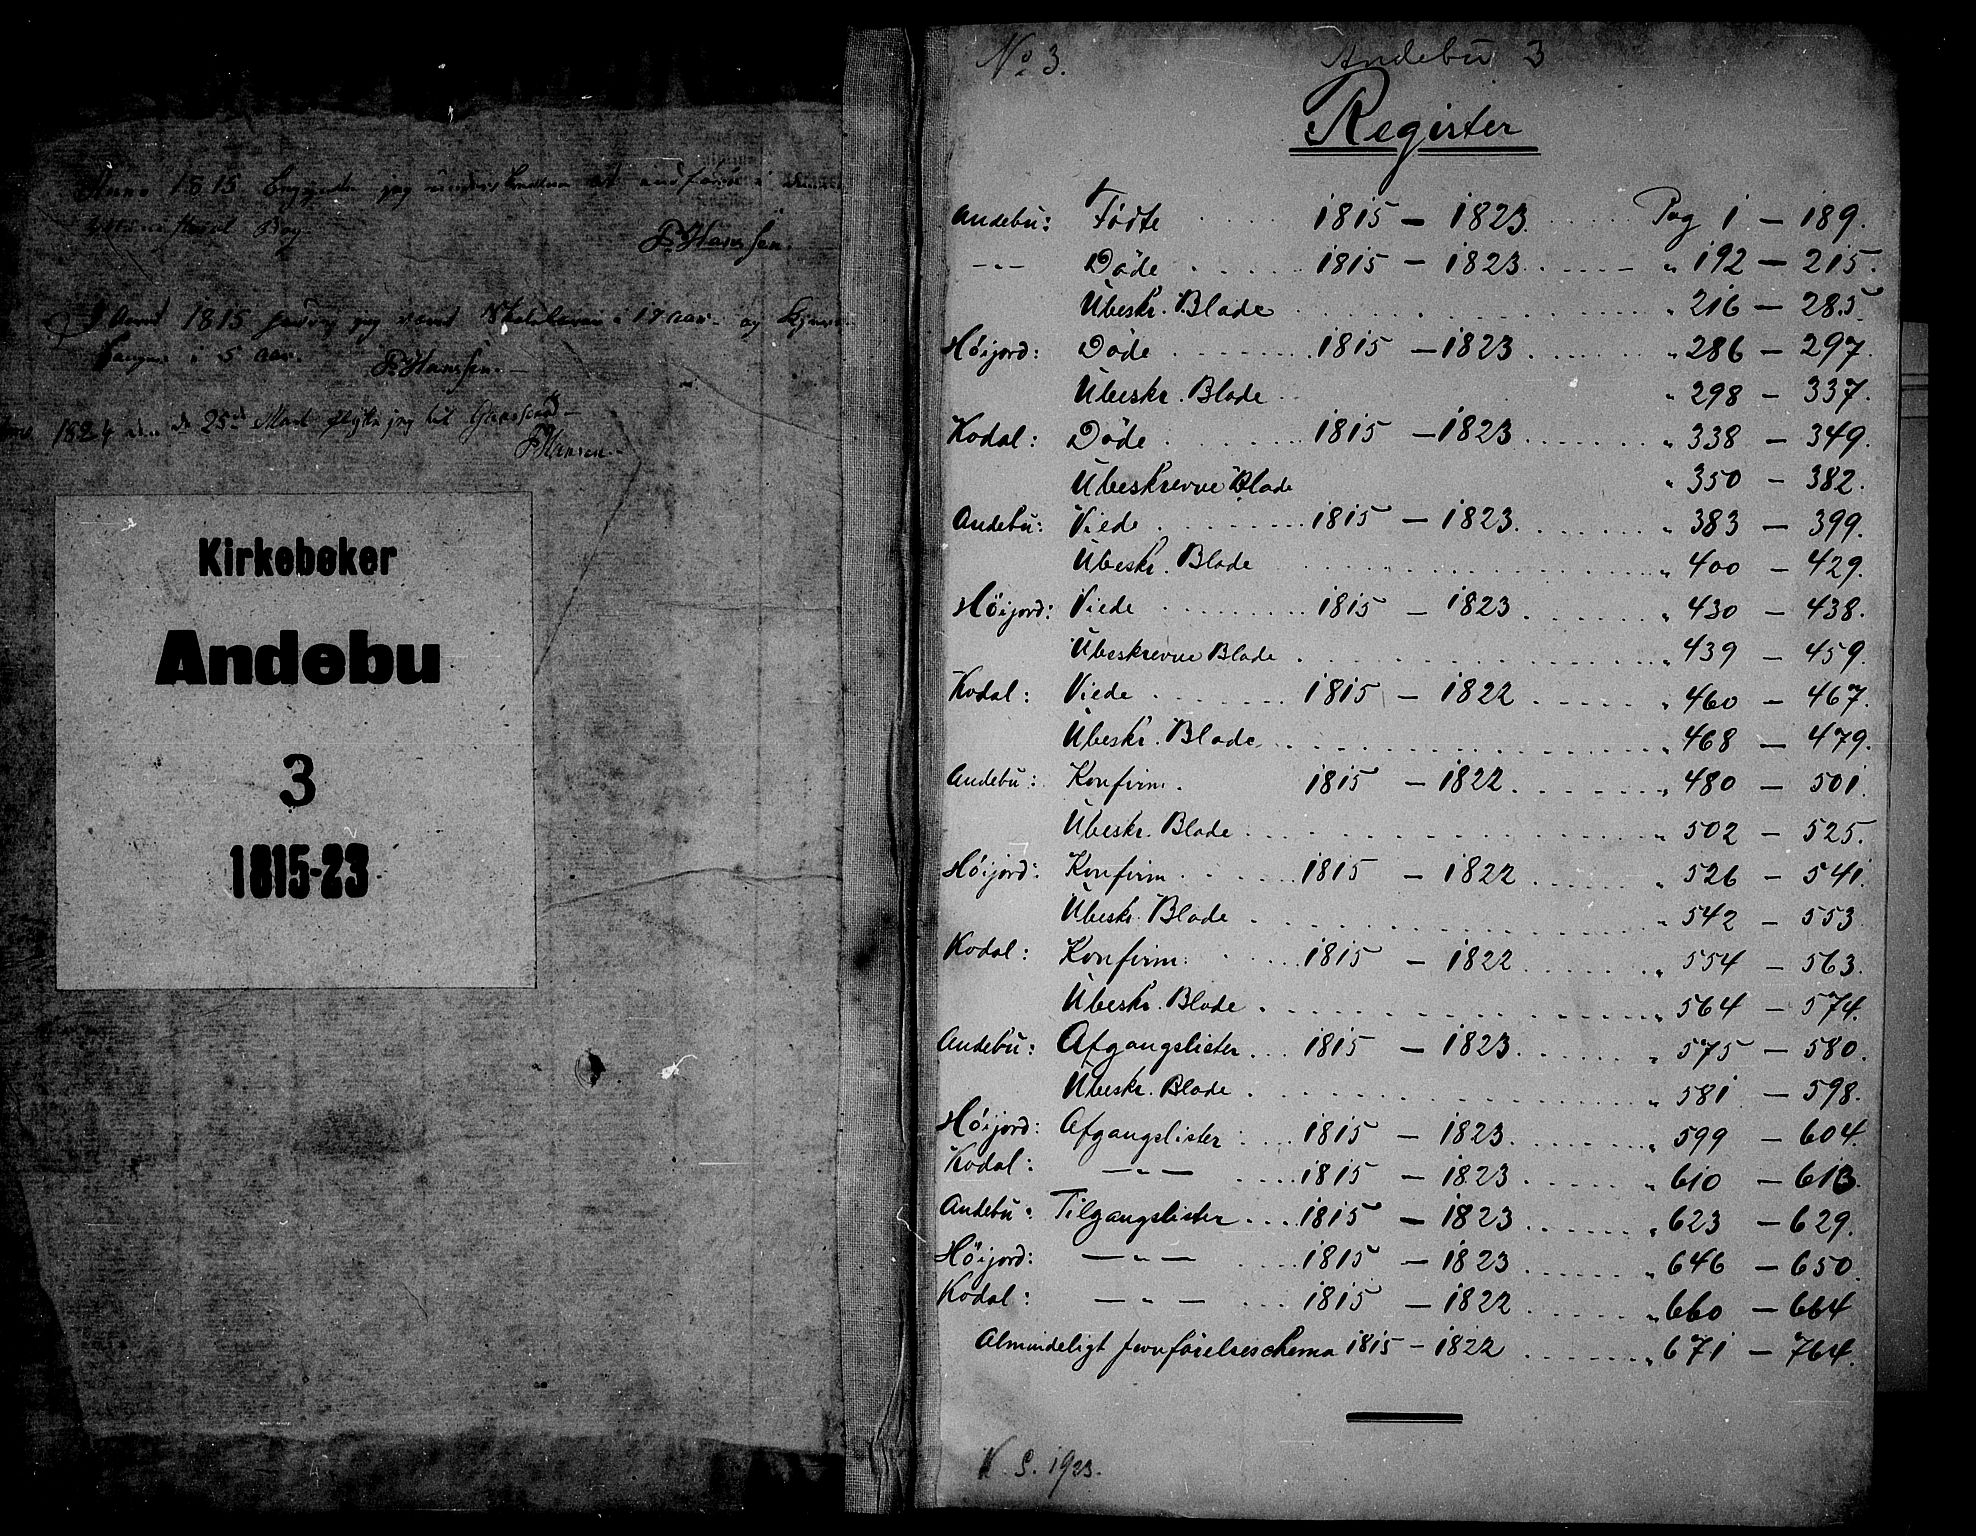 Anno 1815 begyndte jeg underskrevne at indføre i denne
Bog
F. Hansen.
1815 jeg Skolelærer i 17 aar og Kirke
sanger i 5 aar.
F. Hansen.
1824 den 25de Marti flytte jeg til
F. Hansen.
Kirkebøker
Andebu
3
1815-23
No 3. Andebu 3
Register
Andebu: Födte 1815 - 1823. Pag 1 - 189.
-"- Döde 1815 - 1823 " 192 - 215.
Ubeskr. Blade " 216 - 285.
Höijord: Döde 1815 - 1823 " 286 - 297.
Ubeskr. Blade " 298 - 337.
Kodal: Döde 1815 - 1823 " 338 - 349.
Ubeskrevne Blade " 350 - 382.
Andebu: Viede 1815 - 1823. " 383 - 399.
Ubeskr. Blade " 400 - 429.
Höijord: Viede 1815 - 1823 " 430 - 438.
Ubeskrevne Blade " 439 - 459.
Kodal: Viede 1815 - 1822 " 460 - 467.
Ubeskr. Blade " 468 - 479.
Andebu: Konfirm. 1815 - 1822 " 480 - 501.
Ubeskr. Blade " 502 - 525.
Höijord: Konfirm 1815 - 1822 " 526 - 541.
Ubeskr. Blade " 542 - 553
Kodal: Konfirm. 1815 - 1822 " 554 - 563.
Ubeskr. Blade " 564 - 574.
Andebu: Afgangslister 1815 - 1823. " 575 - 580.
Ubeskr. Blade " 581 - 598.
Höijord: Afgangslister 1815 - 1823 " 599 - 604.
Kodal: -"- 1815 - 1823 " 610 - 613.
Andebu: Tilgangslister 1815 - 1823 " 623 - 629.
Höijord: -"- 1815 - 1823 " 646 - 650.
Kodal: -"- 1815 - 1822 " 660 - 664
Almindeligt jevnförelsesschema 1815 - 1822 " 671 - 764.
K. S. 1923.